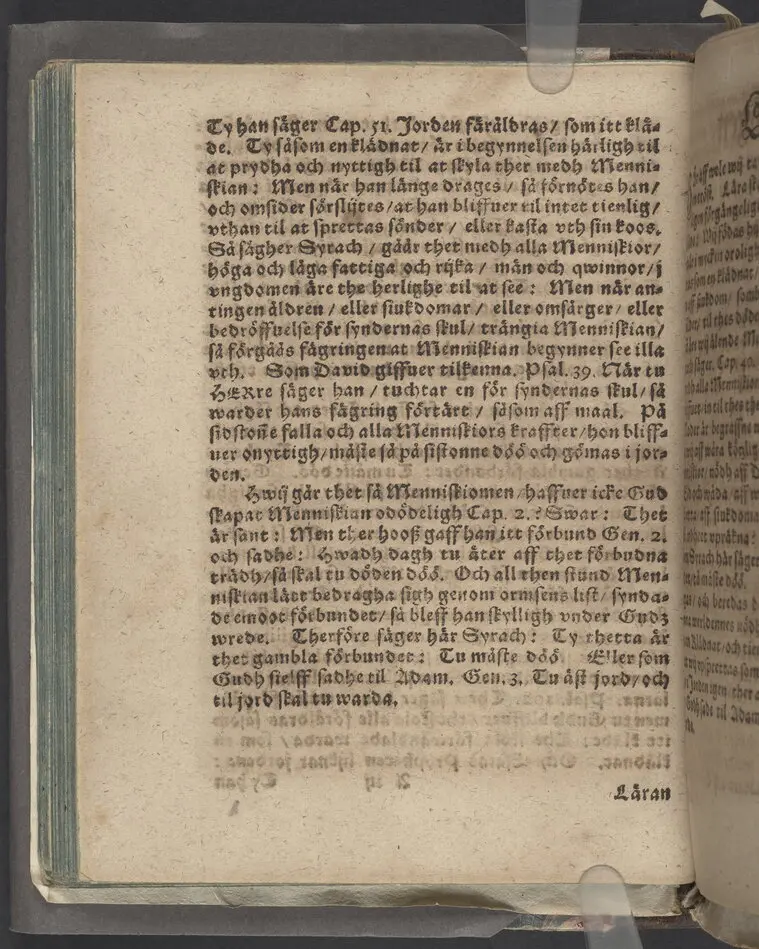 Ty han säger Cap. 51. Jorden föråldras/ som itt klä-
de. Ty såsom en klädnat/ är i begynnelsen härligh til
at prydha och nyttigh til at skyla ther medh Menni-
skian: Men när han länge drages/ så förnötes han/
och omsider förslijtes/ at han bliffuer til intet tienligh/
vthan til at sprettas sönder/ eller kasta vth sin koos.
Så sägher Syrach/ gåår thet medh alla Menniskior/
höga och låga fattiga och rijka/ män och qwinnor/ j
vngdomen äre the herlighe til at see: Men när an-
tingen åldren/ eller siukdomar/ eller omsårger/ eller
bedröffuelse för syndernas skul/ trängia Menniskian/
så förgåås fägringen at Menniskian begynner see illa
vth. Som David giffuer tilkenna. Psal. 39. När tu
HERre säger han/ tuchtar en för syndernas skul/ så
warder hans fägring förtärt/ såsom aff maal. På
sidstonne falla och alla Menniskiors kraffter/ hon bliff-
uer onyttigh/ måste så på sistonne döö och gömas i jor-
den.
Hwij går thet så Menniskiomen/ haffuer icke Gud
skapat Menniskian odödeligh Cap. 2.? Swar: Thet
är sant: Men ther hooß gaff han itt förbund Gen. 2.
och sadhe: Hwadh dagh tu äter aff thet förbudna
trädh/ så skal tu döden döö. Och all then stund Men-
niskian lätt bedragha sigh genom ormsens list/ synda-
de emoot förbundet/ så bleff han skylligh vnder Gudz
wrede. Therföre säger här Syrach: Ty thetta är
thet gambla förbundet: Tu måste döö Eller som
Gudh sielff sadhe til Adam. Gen. 3. Tu äst jord/ och
til jord skal tu warda.
Läran